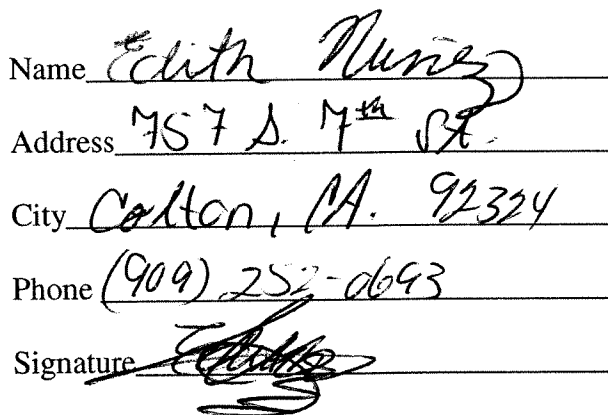 Name Edith Nuñez
Address 757 S. 7th St.
City Colton, CA. 92324
Phone (909) 252-0693
Signature